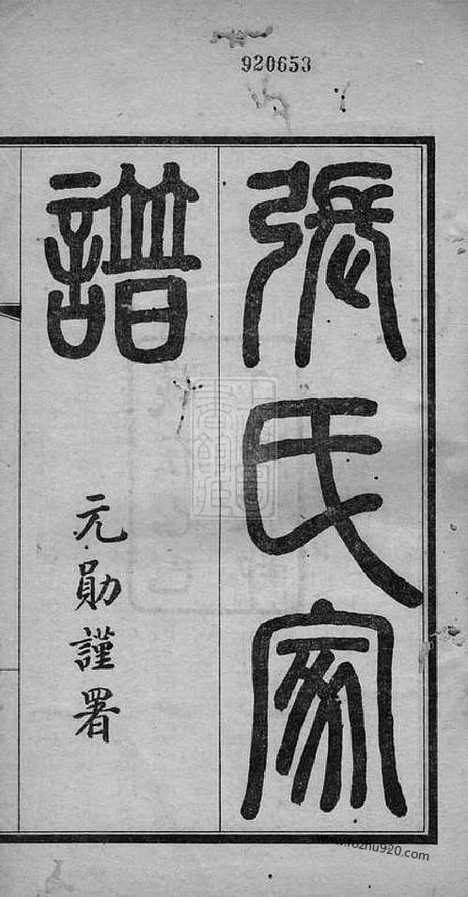 920653
張氏家
譜
元勛謹署
www.rozhu920.com